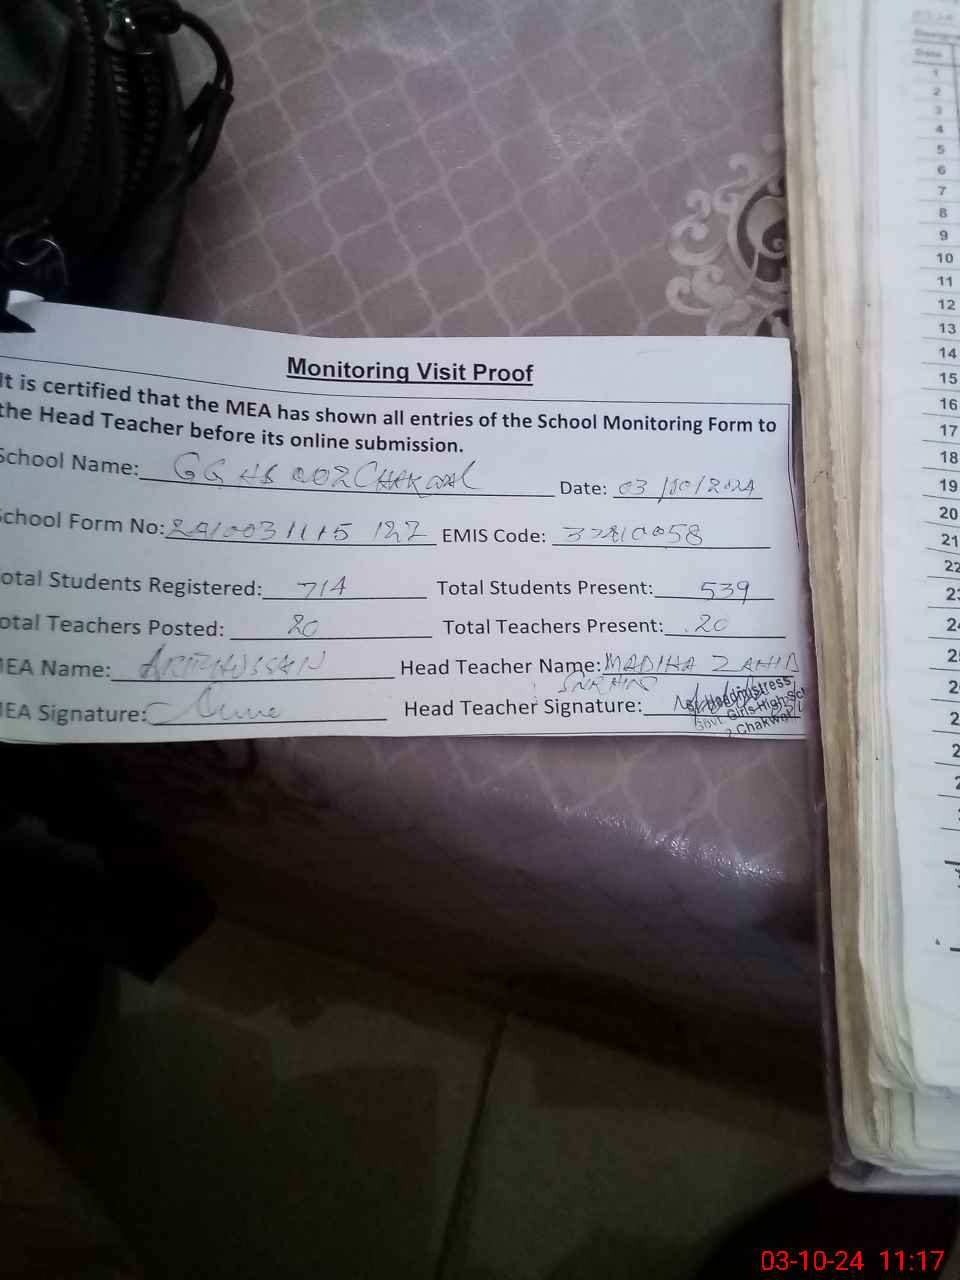 Monitoring Visit Proof
It is certified that the MEA has shown all entries of the School Monitoring Form to
the Head Teacher before its online submission.
School Name: GGHS 002 Chakwal Date: 03/10/2024
School Form No: EMIS Code:
otal Students Registered: 714 Total Students Present: 539
otal Teachers Posted: 20 Total Teachers Present: 20
MEA Name: Head Teacher Name: MADIHA ZAHID
MEA Signature: Head Teacher Signature:
Headmistress
Govt. Girls High Sc
2 Chakwal
Date
1
2
3
4
5
6
7
8
9
10
11
12
13
14
15
16
17
18
19
20
21
22
03-10-24 11:17